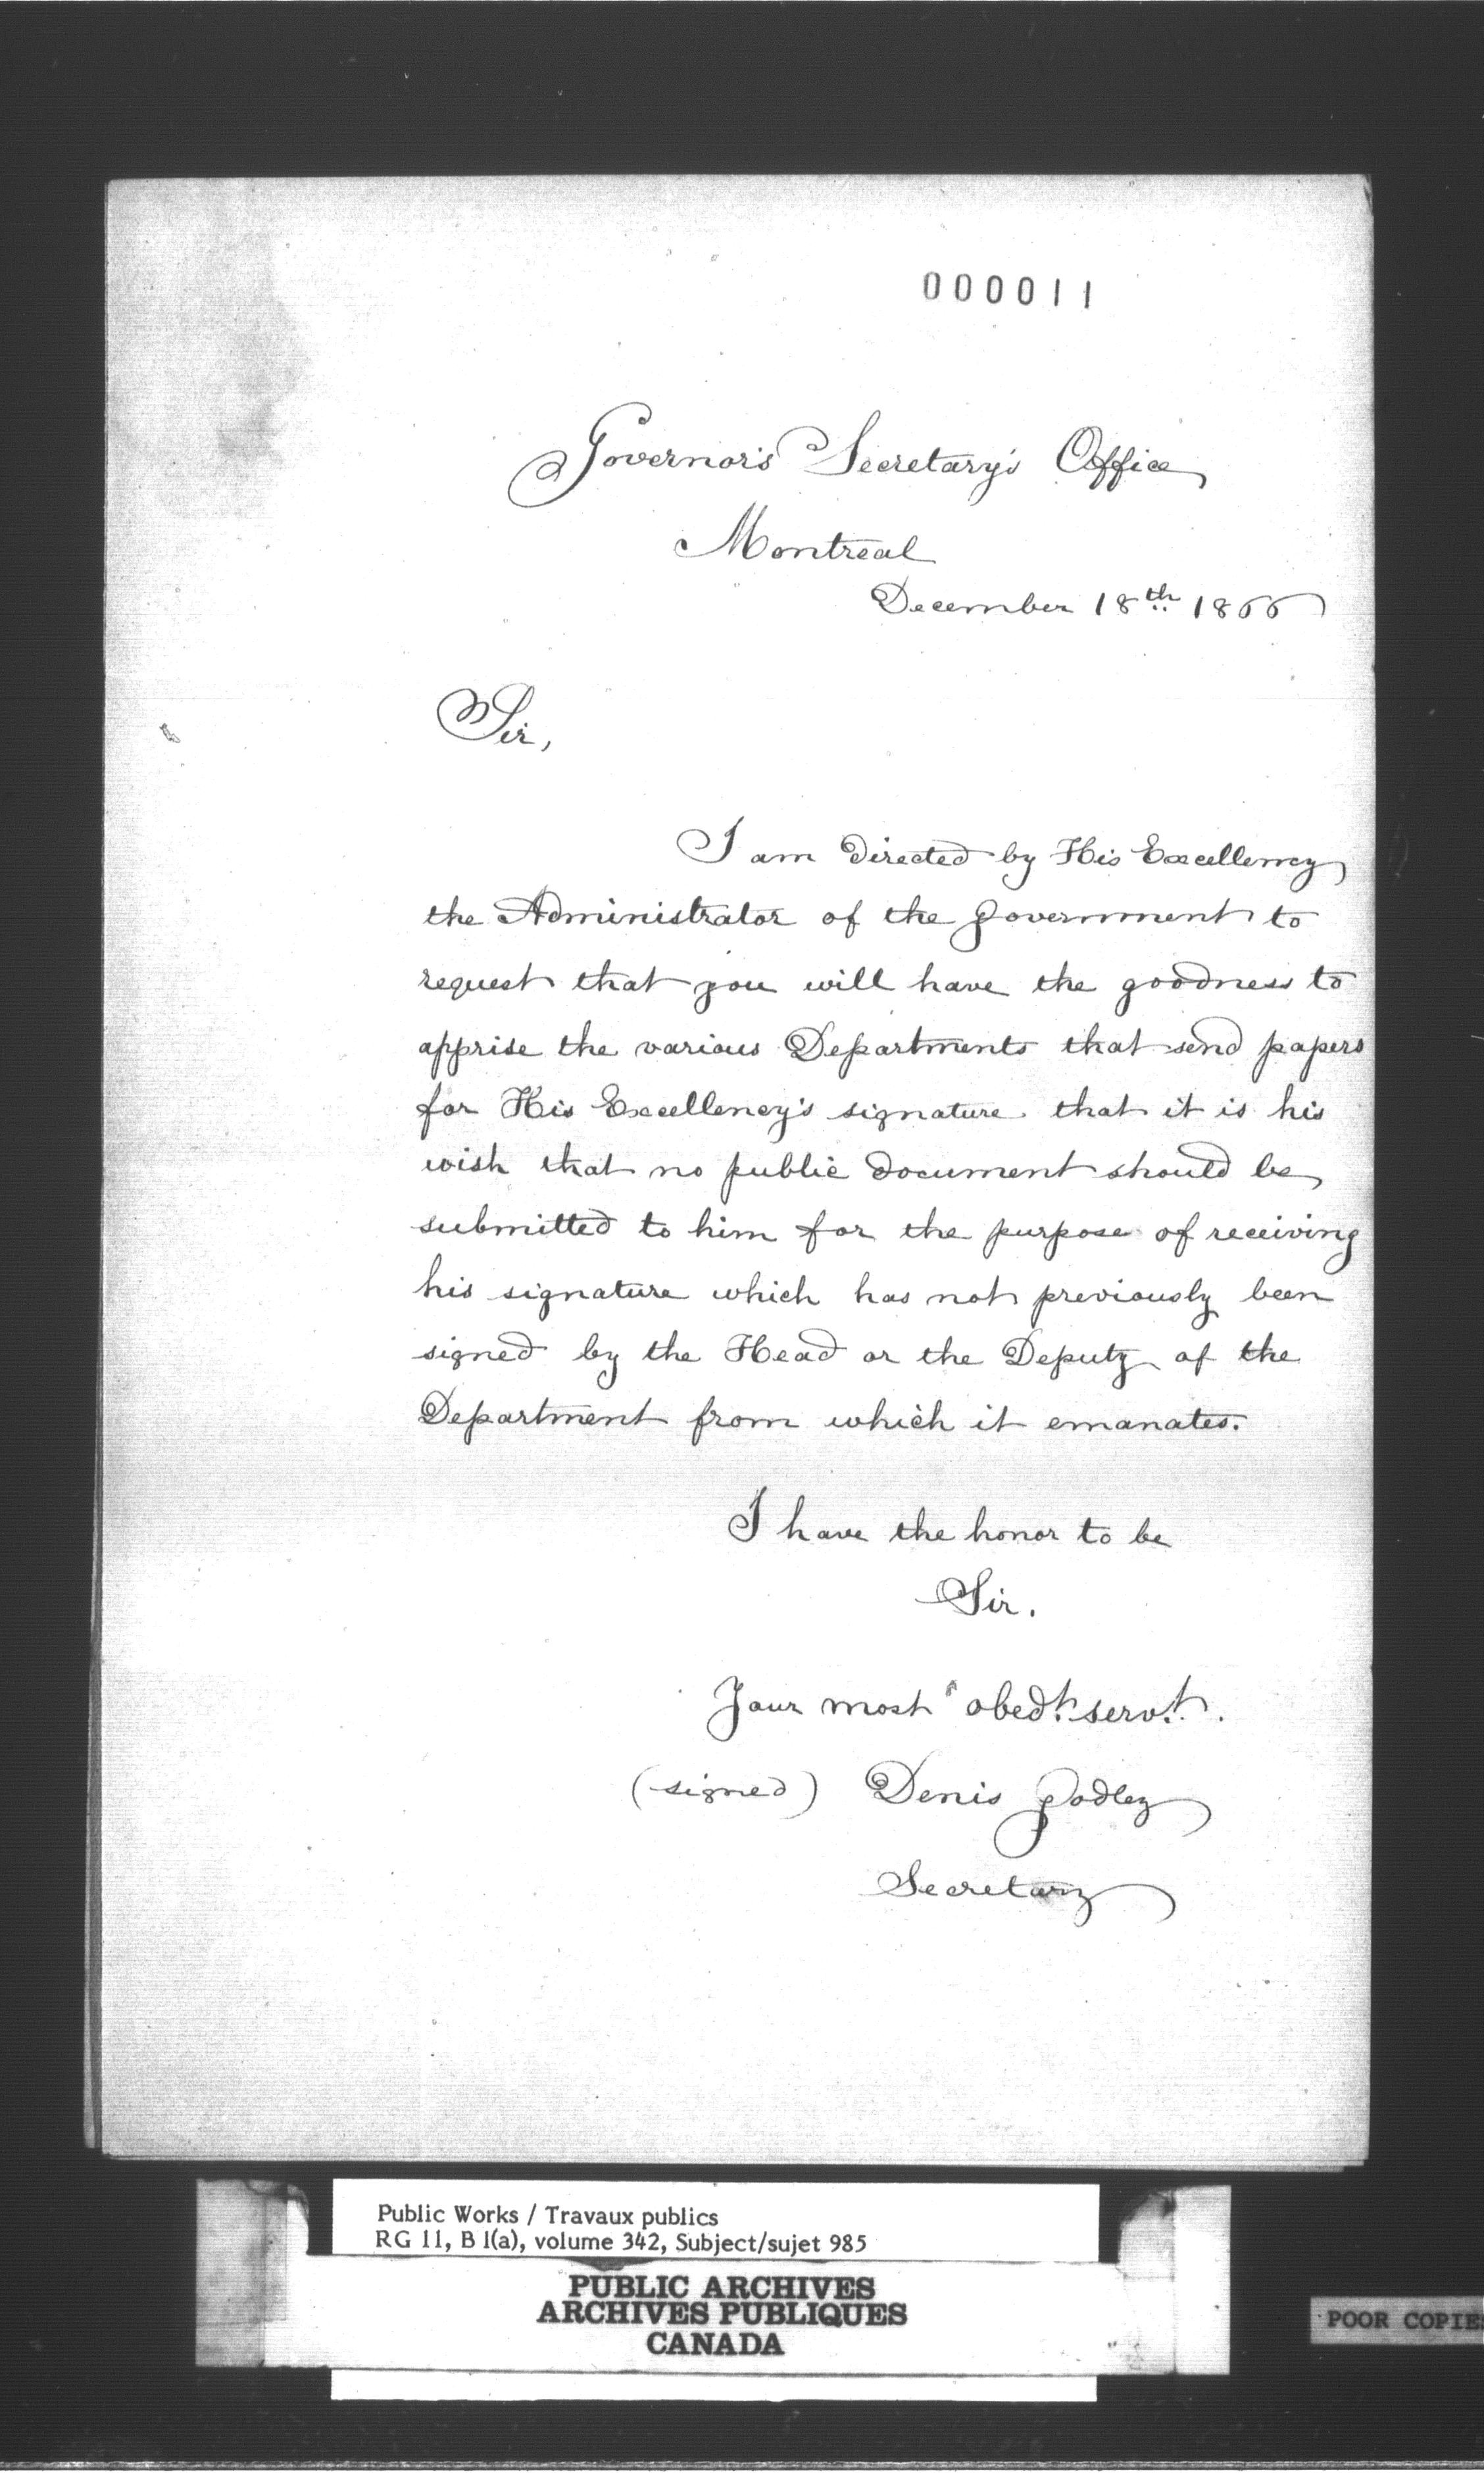 000011
Governor's Secretary's Office
Montreal
December 18th 1866
Sir,
I am directed by His Excellency
the Administrator of the Government to
request that you will have the goodness to
apprise the various Departments that send papers
for His Excellency's signature that it is his
wish that no public document should be
submitted to him for the purpose of receiving
his signature which has not previously been
signed by the Head or the Deputy of the
Department from which it emanates.
I have the honor to be
Sir.
Your most obedt. servt.
(signed) Denis Godley
Secretary
Public Works / Travaux publics
RG 11, B 1(a), volume 342, Subject/sujet 985
PUBLIC ARCHIVES
ARCHIVES PUBLIQUES
CANADA
POOR COPIES